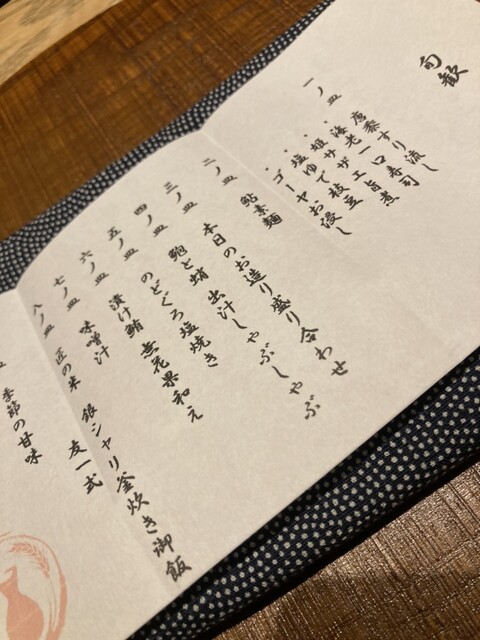 旬歓
一ノ皿 唐黍すり流し
・海老一口寿司
・姫サザエ旨煮
・塩ゆで枝豆
・ゴーヤお浸し
二ノ皿 鮎素麺
三ノ皿 本日のお造り盛り合わせ
四ノ皿 鮑と蛸 出汁しゃぶしゃぶ
五ノ皿 のどぐろ塩焼き
六ノ皿 漬け鮪 無花果和え
七ノ皿 味噌汁
八ノ皿 匠の米 銀シャリ釜炊き御飯
友一式
皿 季節の甘味